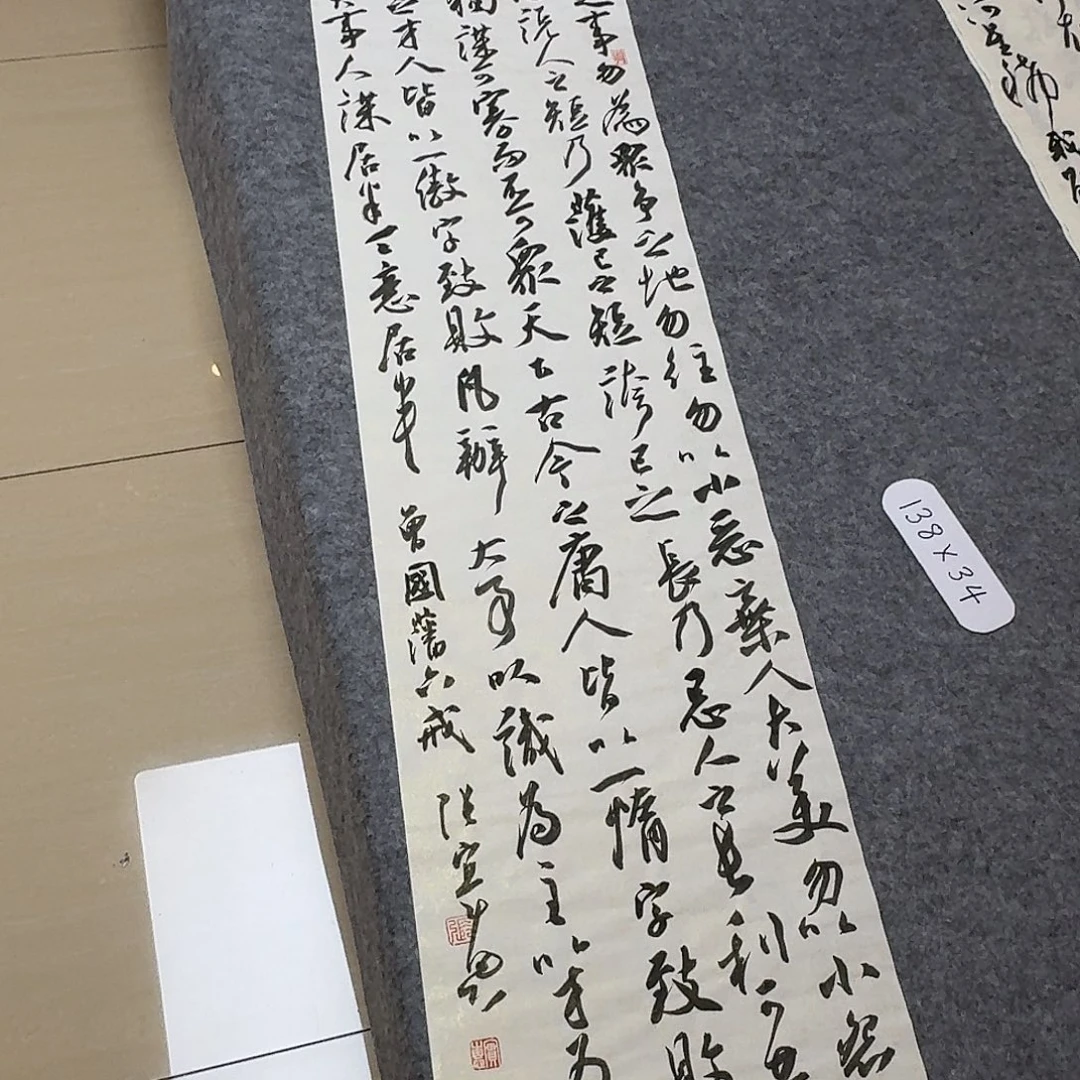 之事勿為眾爭之地勿往勿以小惡棄人大美勿以小怨
說人之短乃護己之短誇己之長乃忌人之長利可共
獨謀可寡而不可眾天下古今之庸人皆以一惰字致敗
之才人皆以一傲字致敗凡辦大事以識為主以才為
大事人謀居半天意居半 曾國藩六戒 張宣
張
138×34